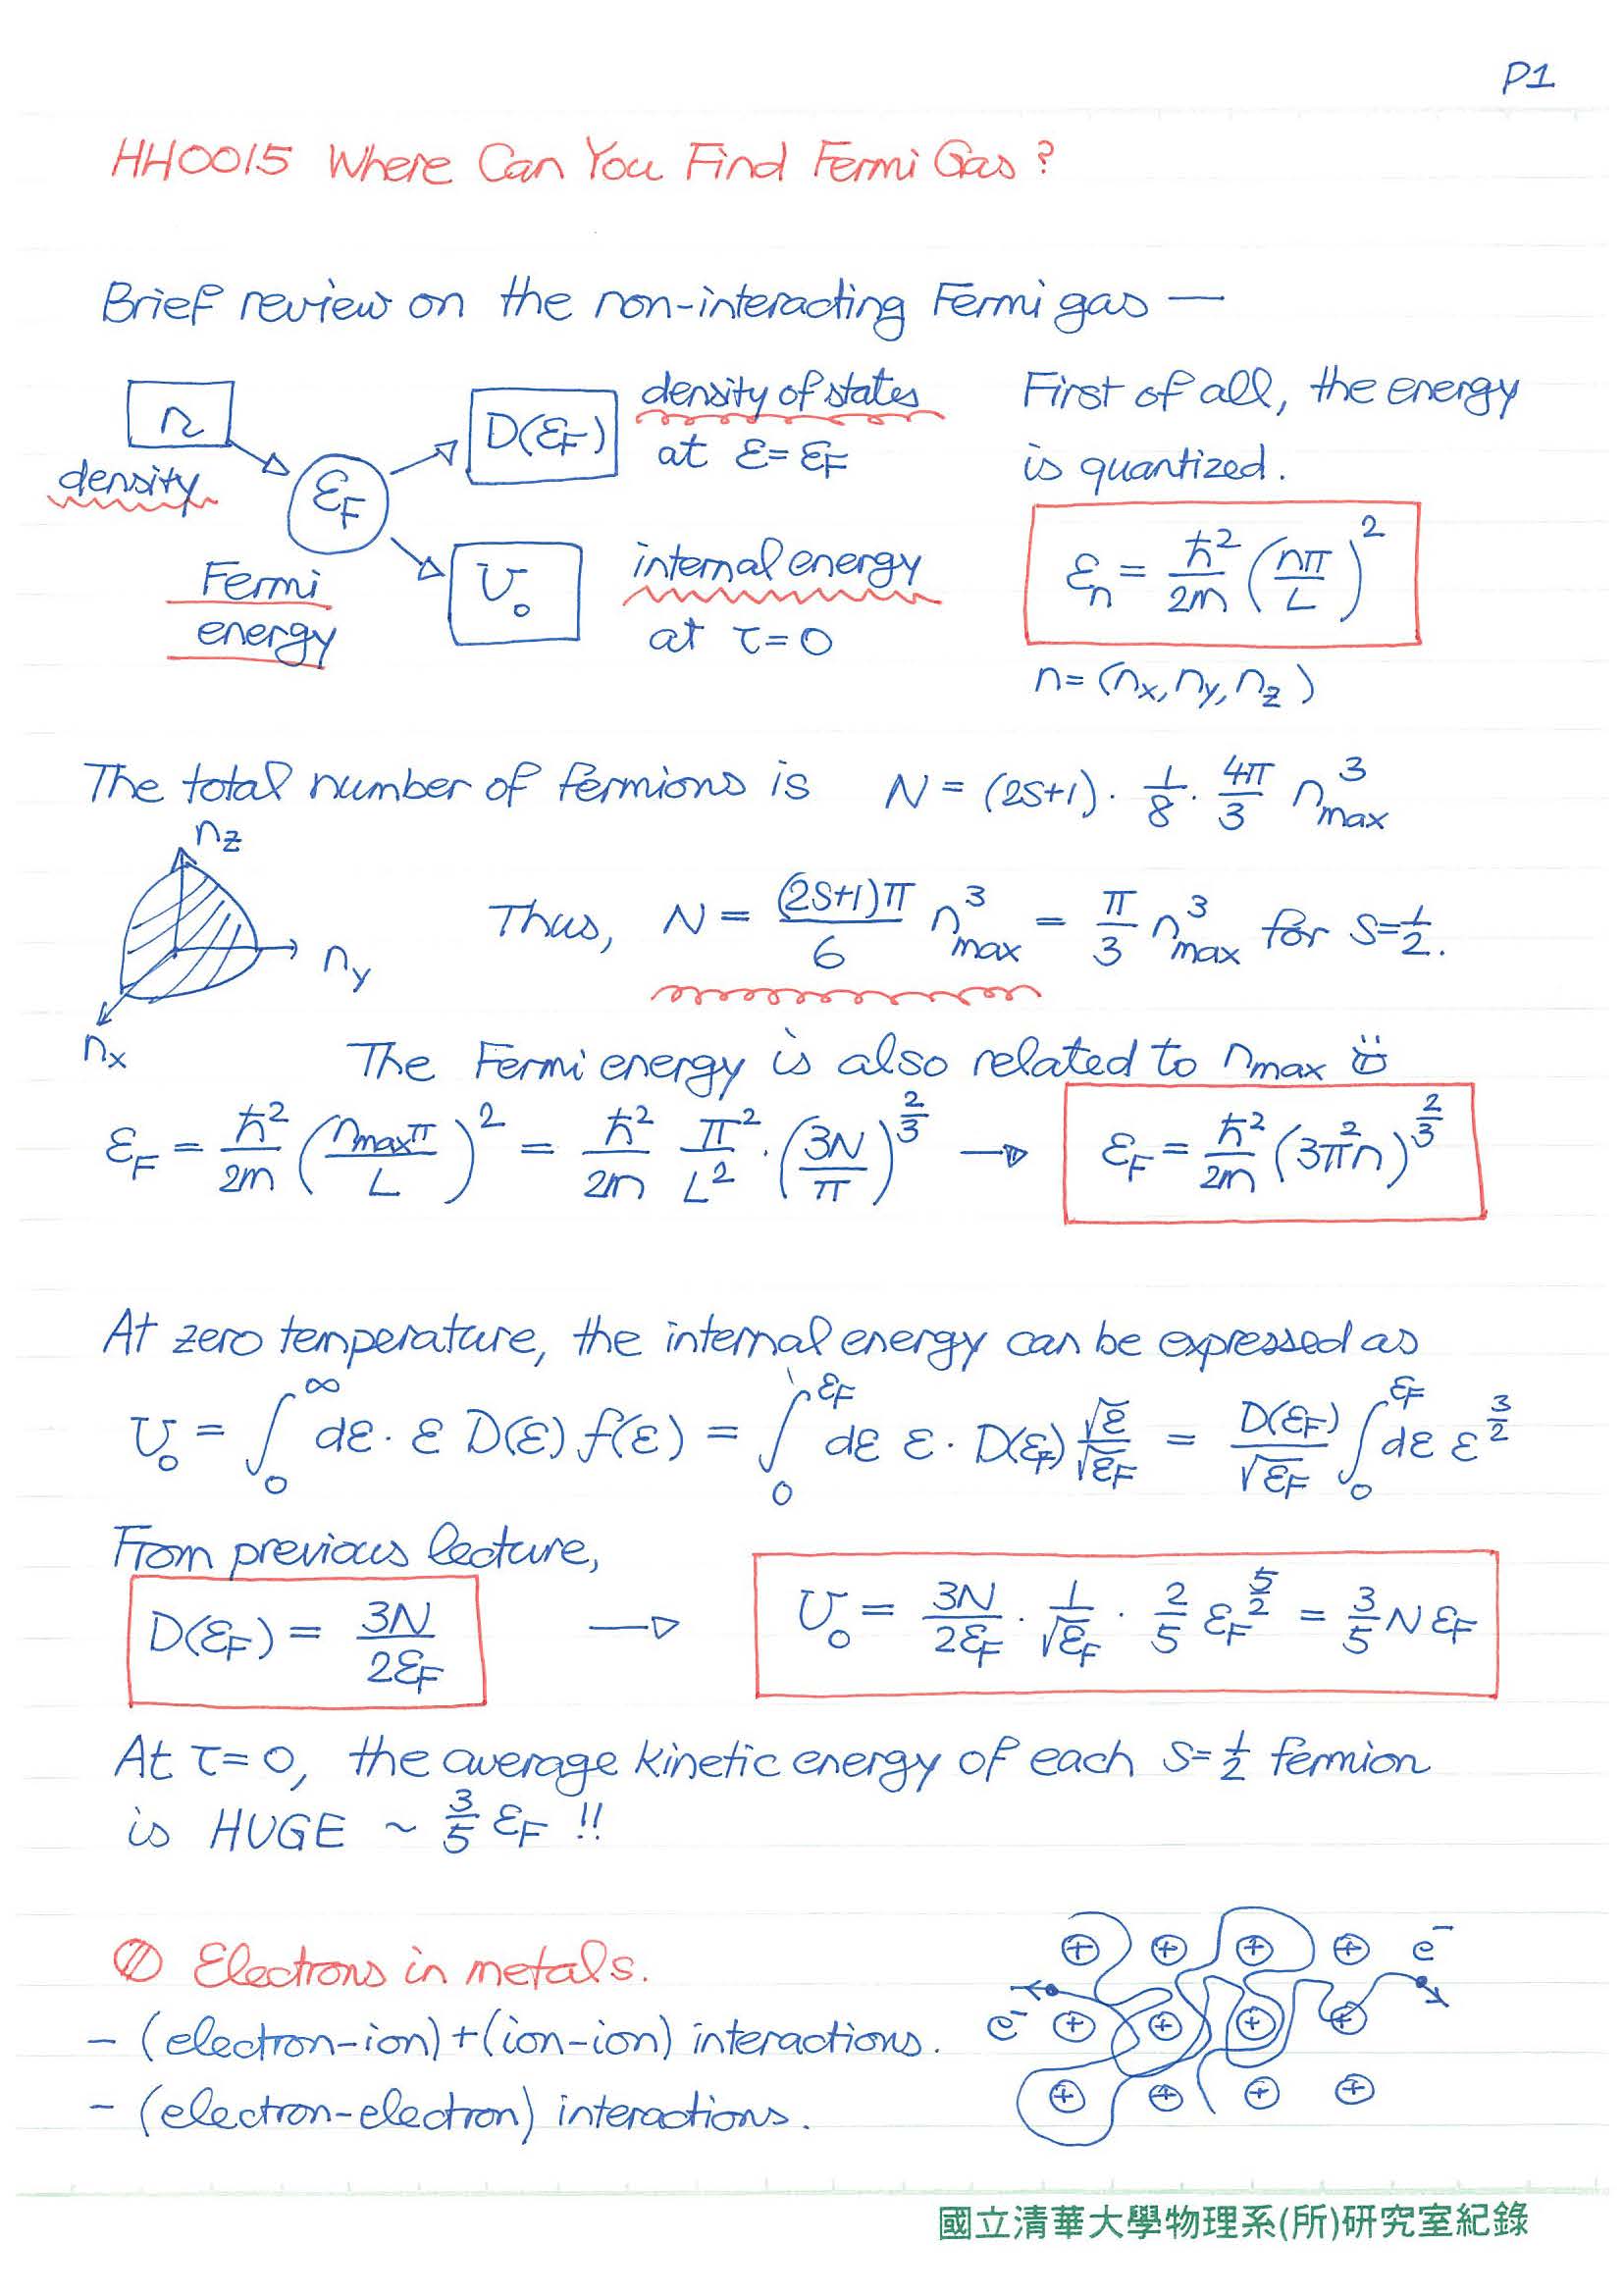 P1
HH0015 Where Can You Find Fermi Gas?
Brief review on the non-interacting Fermi gas —
n
density
ε_F
Fermi
energy
D(ε_F)
density of states
at ε = ε_F
U₀
internal energy
at τ = 0
First of all, the energy
is quantized.
ε_n = ħ²/2m (nπ/L)²
n = (n_x, n_y, n_z)
The total number of fermions is N = (2S+1) · 1/8 · 4π/3 n³_max
n_z
n_y
n_x
Thus, N = (2S+1)π/6 n³_max = π/3 n³_max for S=½.
The Fermi energy is also related to n_max ☺
ε_F = ħ²/2m (n_max π/L)² = ħ²/2m π²/L² · (3N/π)^(2/3) → ε_F = ħ²/2m (3π²n)^(2/3)
At zero temperature, the internal energy can be expressed as
U₀ = ∫₀^∞ dε · ε D(ε) f(ε) = ∫₀^(ε_F) dε ε · D(ε_F) √ε/√ε_F = D(ε_F)/√ε_F ∫₀^(ε_F) dε ε^(3/2)
From previous lecture,
D(ε_F) = 3N/2ε_F → U₀ = 3N/2ε_F · 1/√ε_F · 2/5 ε_F^(5/2) = 3/5 N ε_F
At τ = 0, the average kinetic energy of each S=½ fermion
is HUGE ~ 3/5 ε_F !!
Electrons in metals.
- (electron-ion) + (ion-ion) interactions.
- (electron-electron) interactions.
+ + + + e⁻
e⁻ + + + +
+ + + +
國立清華大學物理系(所)研究室紀錄